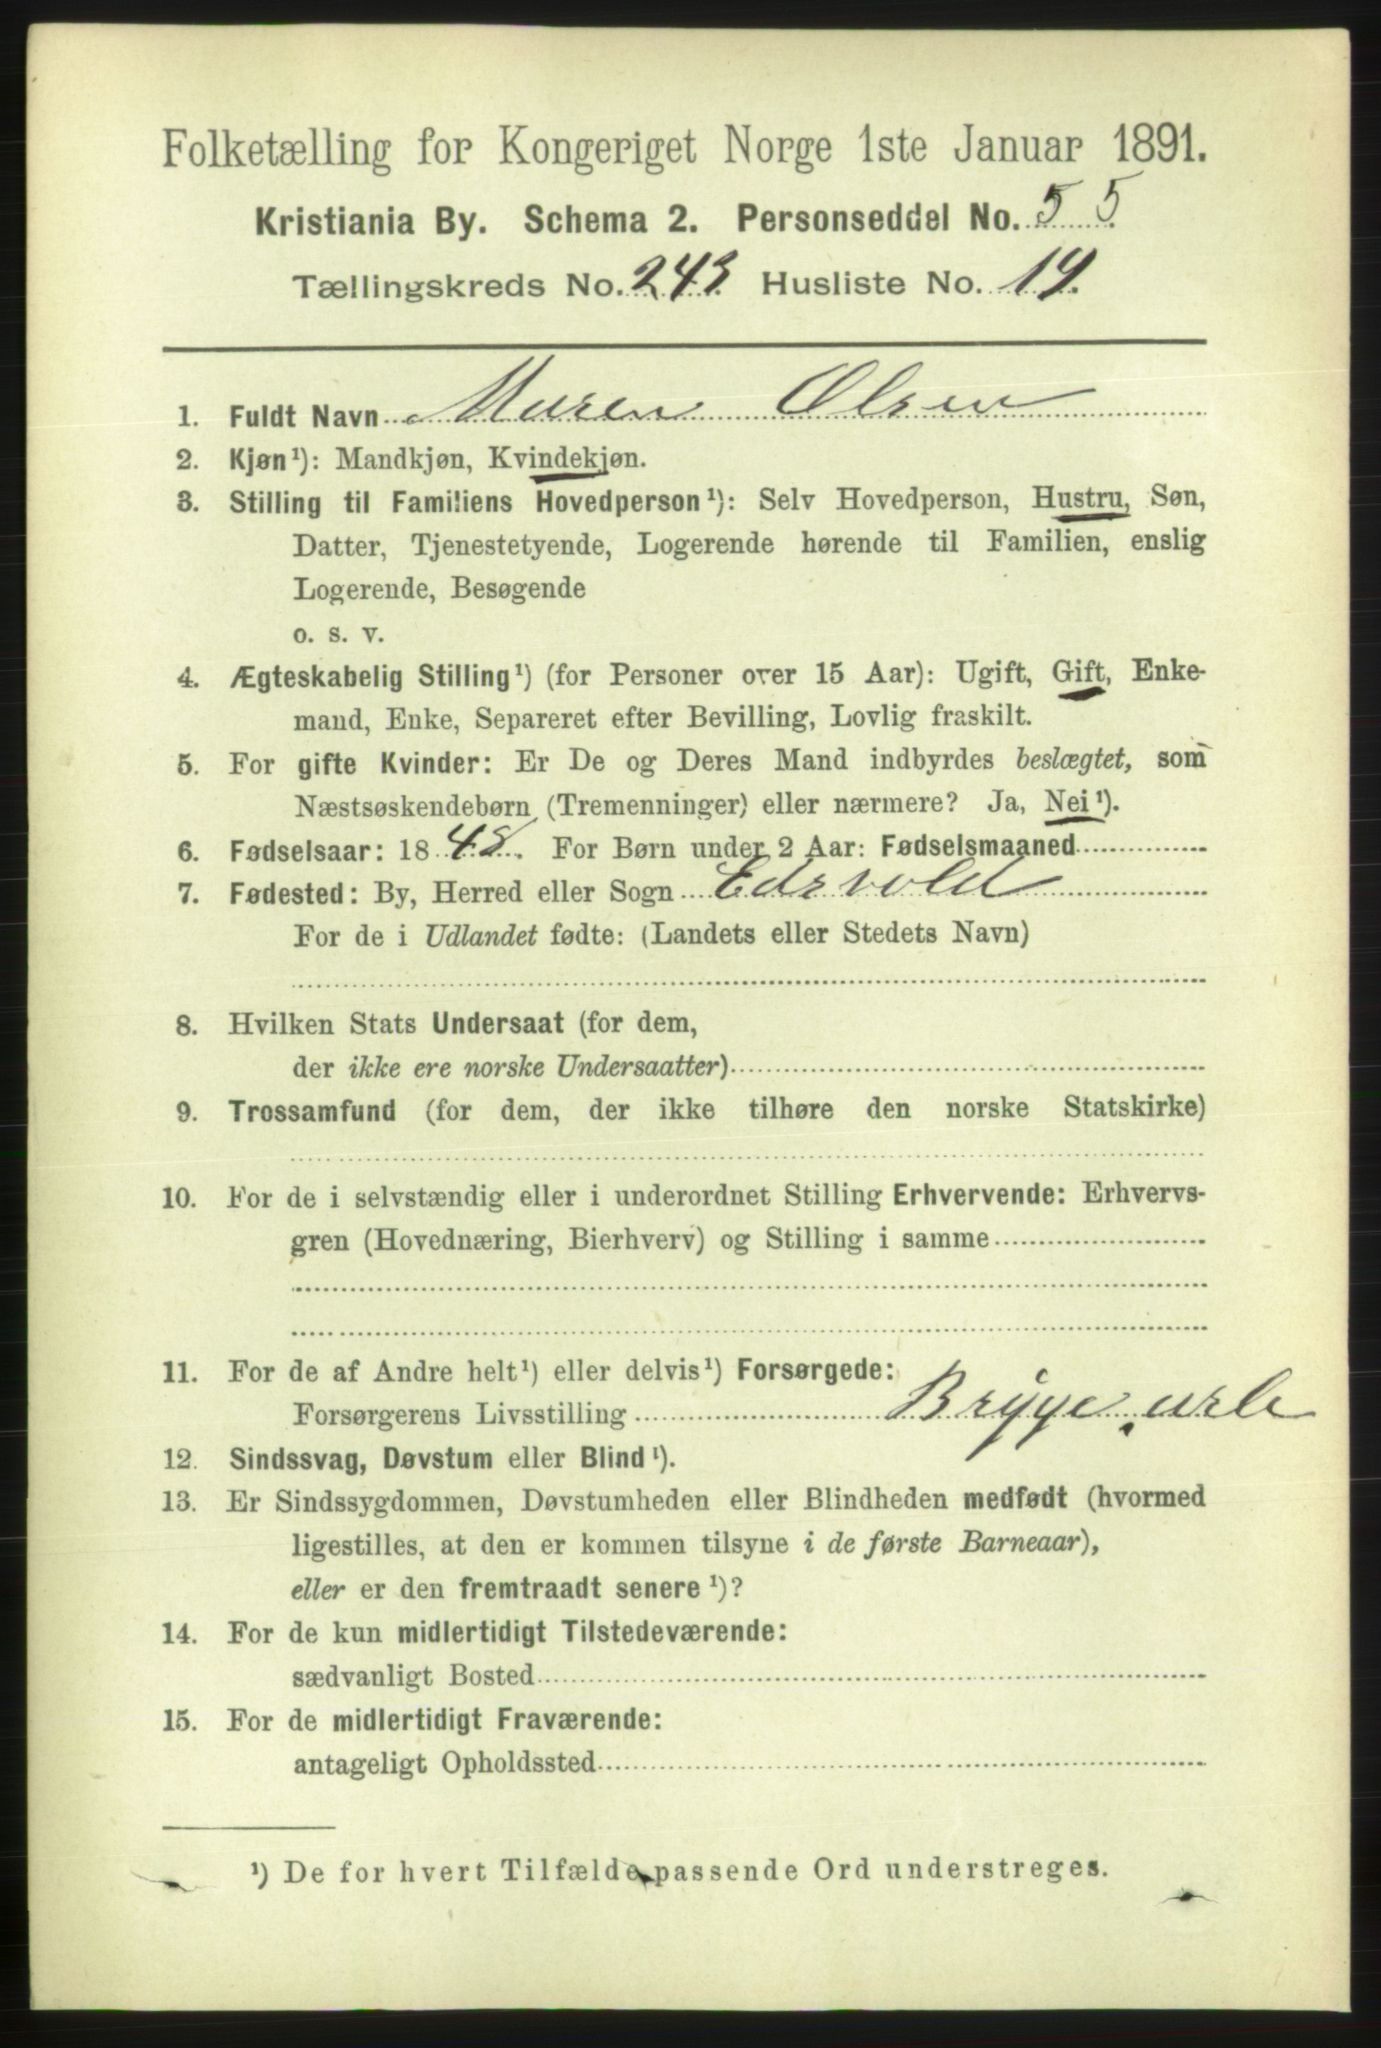 Folketælling for Kongeriget Norge 1ste Januar 1891.
Kristiania By. Schema 2. Personseddel No. 55
Tællingskreds No. 243 Husliste No. 19.
1. Fuldt Navn Maren Olsen
2. Kjøn¹): Mandkjøn, Kvindekjøn.
3. Stilling til Familiens Hovedperson¹): Selv Hovedperson, Hustru, Søn,
Datter, Tjenestetyende, Logerende hørende til Familien, enslig
Logerende, Besøgende
o. s. v.
4. Ægteskabelig Stilling¹) (for Personer over 15 Aar): Ugift, Gift, Enke-
mand, Enke, Separeret efter Bevilling, Lovlig fraskilt.
5. For gifte Kvinder: Er De og Deres Mand indbyrdes beslægtet, som
Næstsøskendebørn (Tremenninger) eller nærmere? Ja, Nei¹).
6. Fødselsaar: 1848. For Børn under 2 Aar: Fødselsmaaned
7. Fødested: By, Herred eller Sogn Edsvold
For de i Udlandet fødte: (Landets eller Stedets Navn)
8. Hvilken Stats Undersaat (for dem,
der ikke ere norske Undersaatter)
9. Trossamfund (for dem, der ikke tilhøre den norske Statskirke)
10. For de i selvstændig eller i underordnet Stilling Erhvervende: Erhvervs-
gren (Hovednæring, Bierhverv) og Stilling i samme
11. For de af Andre helt¹) eller delvis¹) Forsørgede:
Forsørgerens Livsstilling Bryggearb
12. Sindssvag, Døvstum eller Blind¹).
13. Er Sindssygdommen, Døvstumheden eller Blindheden medfødt (hvormed
ligestilles, at den er kommen tilsyne i de første Barneaar),
eller er den fremtraadt senere¹)?
14. For de kun midlertidigt Tilstedeværende:
sædvanligt Bosted
15. For de midlertidigt Fraværende:
antageligt Opholdssted
¹) De for hvert Tilfælde passende Ord understreges.